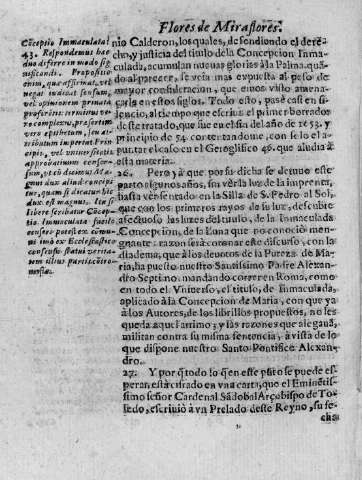 Flores de Miraflores.
Cõceptio Immaculata!
43. Respondemus hæc
duo differre in modo sig
nificandi. Propositio
enim, quæ affirmat, vel
negat indicat sensum,
vel opinionem priuata
proferētis: terminus ve-
ro complexus, præsertim
vero epithetum, seu at-
tributum impertat Prin
cipis, vel vniuersitatis
approbationem consen-
sum, vt cō dicimus Al
gnus dux aliud concipi-
tur, quam dū hic albus
dux est magnus. Itē
libere scribatur Cōcep-
tio Immaculata facile
sensus potest ex cōmu-
ni imō ex Ecclesiastico
consensu statui verita-
tem illius partis cōtro-
uersiæ.
nio Calderon, los quales, defendiendo el dere-
cho, y justicia del titulo de la Concepcion In-
maculada, acumulan nueuas glorias à la Palma, quãdo
al parecer, se veìa mas expuesta al peso de
mayor consideracion, que emos visto amena-
carla en estos siglos. Todo esto, pasè casi en si-
lencio, al tiempo que escriui el primer borrador
deste tratado, que fue en el fin del año de 1653. y
principio de 54. contentandome, con solo el a-
puntar el caso en el Geroglifico 46. que aludia à
esta materia.
26. Pero yà que por su dicha se detuuo este
parto algunos años, sin ver la luz de la imprenta,
hasta ver sentado en la Silla de S. Pedro al Sol,
que con los primeros rayos de su luz, descubre
afectuoso las luzes del titulo, de la Inmaculada
Concepcion, de la Luna que no conociò men-
guante: razon serà coronar este discurso, con la
diadema, que à los deuotos de la Pureza de Ma-
ria, ha puesto nuestro Santissimo Padre Alexan-
dro Septimo: mandando correr en Roma, como
en todo el Vniuerso, el titulo, de Inmaculada,
aplicado à la Concepcion de Maria, con que ya
à los Autores, de los librillos propuestos, no les
queda aquel arrimo; y las razones que alegauã,
militan contra su misma sentencia, à vista de lo
que dispone nuestro Santo Pontifice Alexan-
dro.
27. Y porq̃ todo lo q̃ en este pũto se puede es-
perar, està cifrado en vna carta, que el Eminẽtis-
simo señor Cardenal Sãdobal Arçobispo de To-
ledo, escriuiò à vn Prelado deste Reyno, su fe-
cha